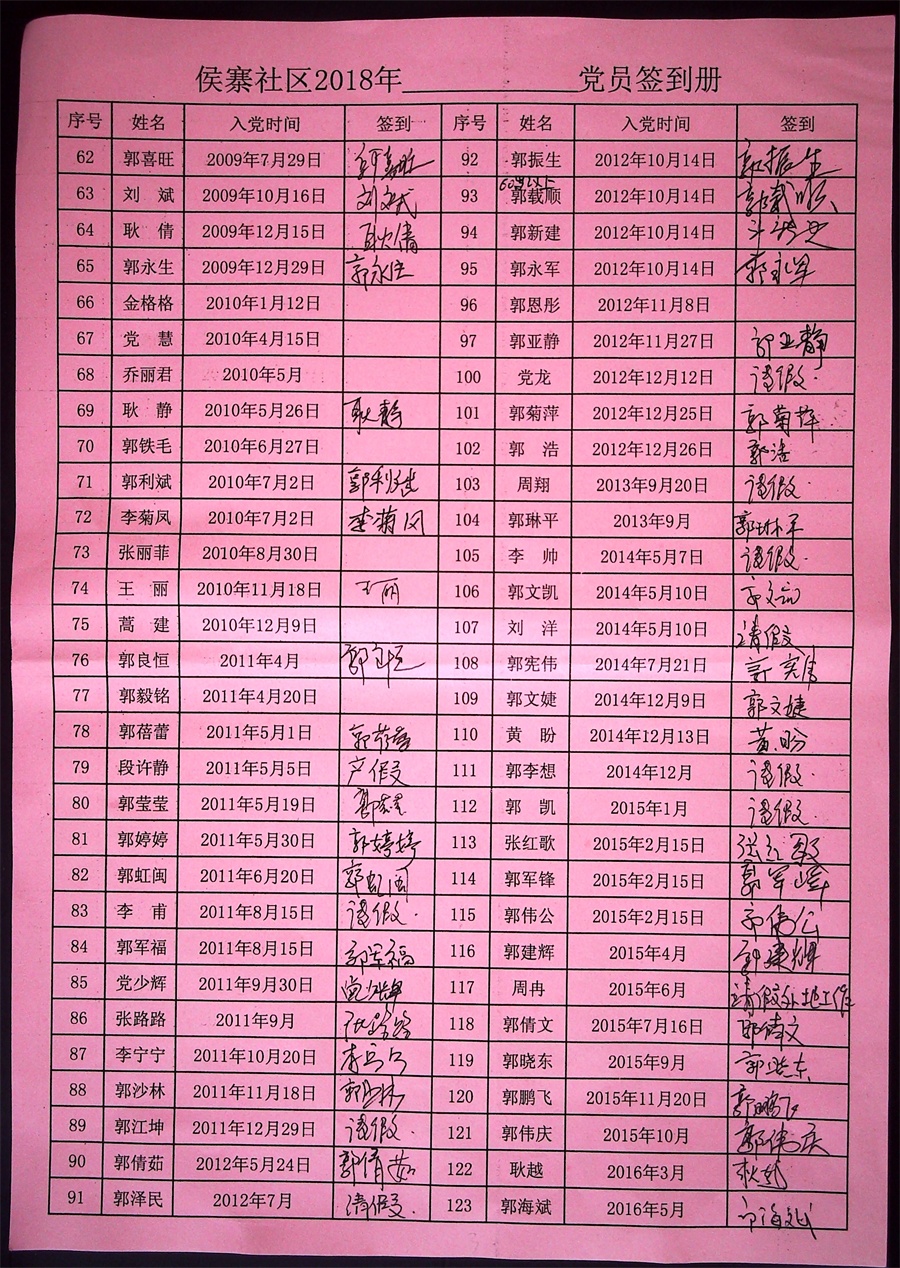 侯寨社区2018年____________党员签到册
序号 姓名 入党时间 签到 序号 姓名 入党时间 签到
62 郭喜旺 2009年7月29日 郭喜旺 92 郭振生 2012年10月14日 郭振生
63 刘 斌 2009年10月16日 刘斌 93 郭载顺 2012年10月14日 郭载顺
64 耿 倩 2009年12月15日 耿倩 94 郭新建 2012年10月14日
65 郭永生 2009年12月29日 郭永生 95 郭永军 2012年10月14日 郭永军
66 金格格 2010年1月12日 96 郭恩彤 2012年11月8日
67 党 慧 2010年4月15日 97 郭亚静 2012年11月27日 郭亚静
68 乔丽君 2010年5月 100 党龙 2012年12月12日 请假.
69 耿 静 2010年5月26日 耿静 101 郭菊萍 2012年12月25日 郭菊萍
70 郭铁毛 2010年6月27日 102 郭 浩 2012年12月26日 郭浩
71 郭利斌 2010年7月2日 郭利斌 103 周翔 2013年9月20日 请假.
72 李菊凤 2010年7月2日 李菊凤 104 郭琳平 2013年9月 郭琳平
73 张丽菲 2010年8月30日 105 李 帅 2014年5月7日 请假.
74 王 丽 2010年11月18日 王丽 106 郭文凯 2014年5月10日 郭文凯
75 蒿 建 2010年12月9日 107 刘 洋 2014年5月10日 请假
76 郭良恒 2011年4月 郭良恒 108 郭宪伟 2014年7月21日 郭宪伟
77 郭毅铭 2011年4月20日 109 郭文婕 2014年12月9日 郭文婕
78 郭蓓蕾 2011年5月1日 郭蓓蕾 110 黄 盼 2014年12月13日 黄盼
79 段许静 2011年5月5日 产假 111 郭李想 2014年12月 请假.
80 郭莹莹 2011年5月19日 郭莹莹 112 郭 凯 2015年1月 请假.
81 郭婷婷 2011年5月30日 郭婷婷 113 张红歌 2015年2月15日 张红歌
82 郭虹闽 2011年6月20日 郭虹闽 114 郭军锋 2015年2月15日 郭军峰
83 李 甫 2011年8月15日 请假. 115 郭伟公 2015年2月15日 郭伟公
84 郭军福 2011年8月15日 郭军福 116 郭建辉 2015年4月 郭建辉
85 党少辉 2011年9月30日 党少辉 117 周冉 2015年6月 请假外地工作
86 张路路 2011年9月 张路路 118 郭倩文 2015年7月16日 郭倩文
87 李宁宁 2011年10月20日 李宁宁 119 郭晓东 2015年9月 郭晓东
88 郭沙林 2011年11月18日 郭沙林 120 郭鹏飞 2015年11月20日 郭鹏飞
89 郭江坤 2011年12月29日 请假. 121 郭伟庆 2015年10月 郭伟庆
90 郭倩茹 2012年5月24日 郭倩茹 122 耿越 2016年3月 耿越
91 郭泽民 2012年7月 请假. 123 郭海斌 2016年5月 郭海斌